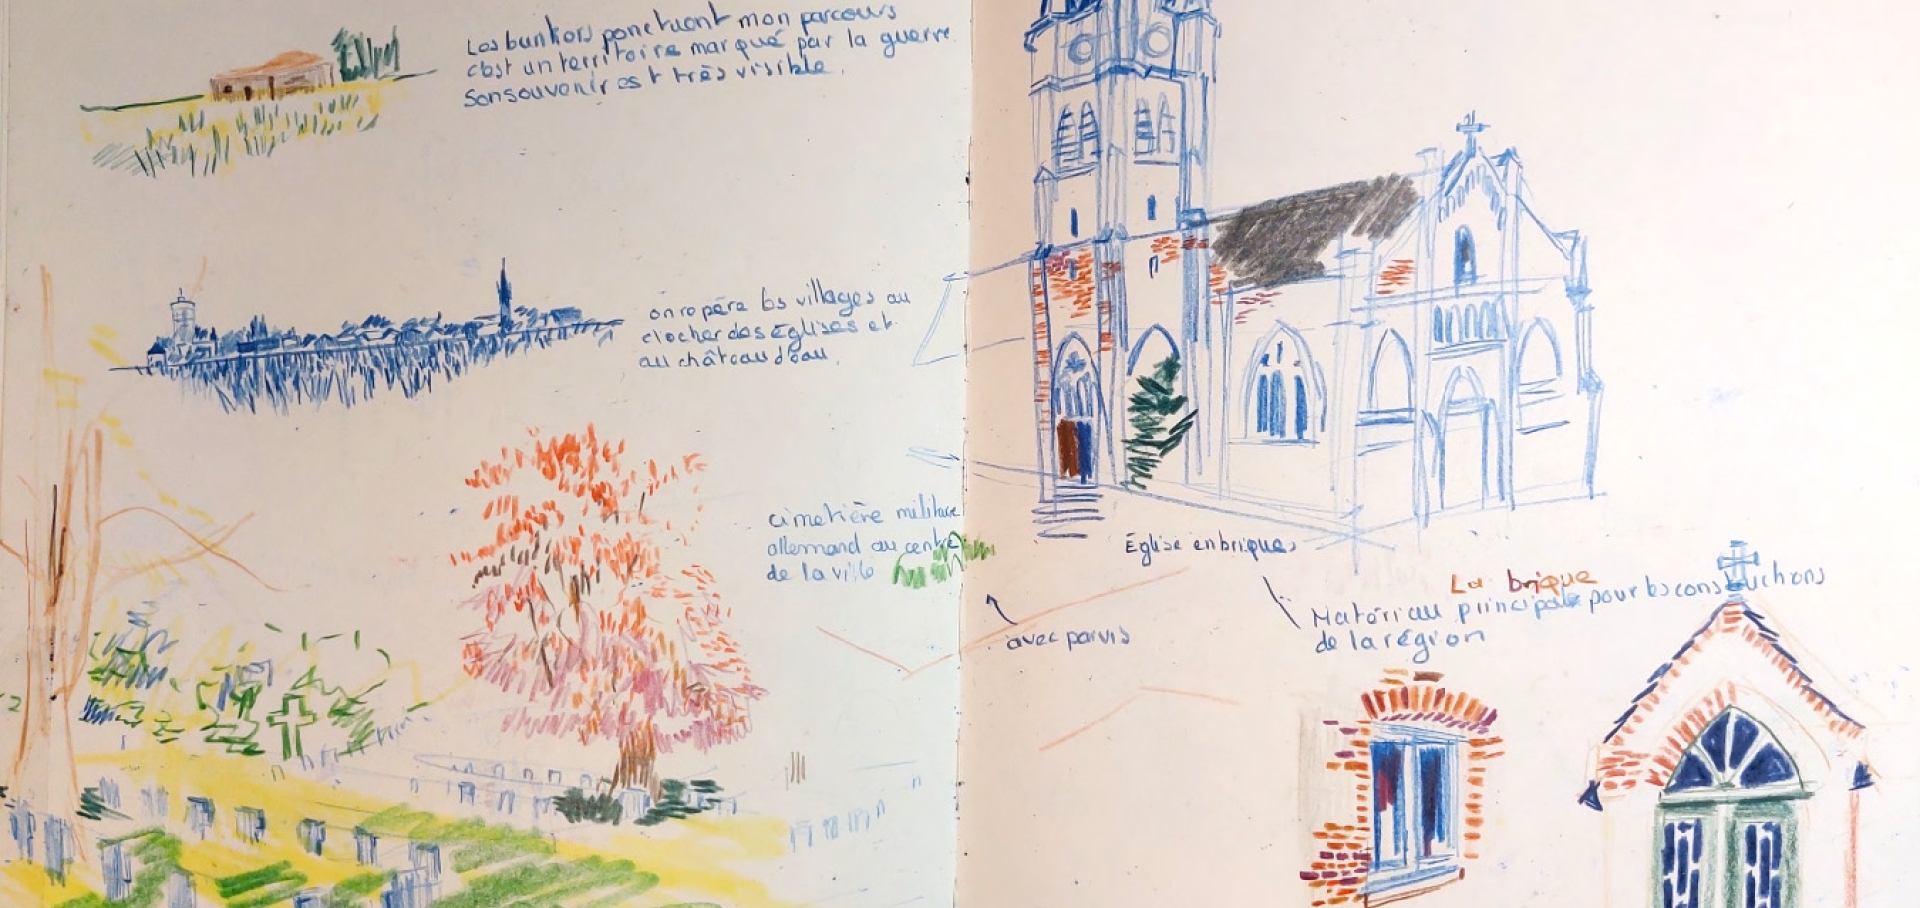 Les bunkers ponctuent mon parcours
c'est un territoire marqué par la guerre.
Son souvenir est très visible.
on repère les villages au
clocher des Églises et
au château d'eau.
cimetière militaire
allemand au centre
de la ville
Église en briques
avec parvis
La brique
Matériau principale pour les constructions
de la région